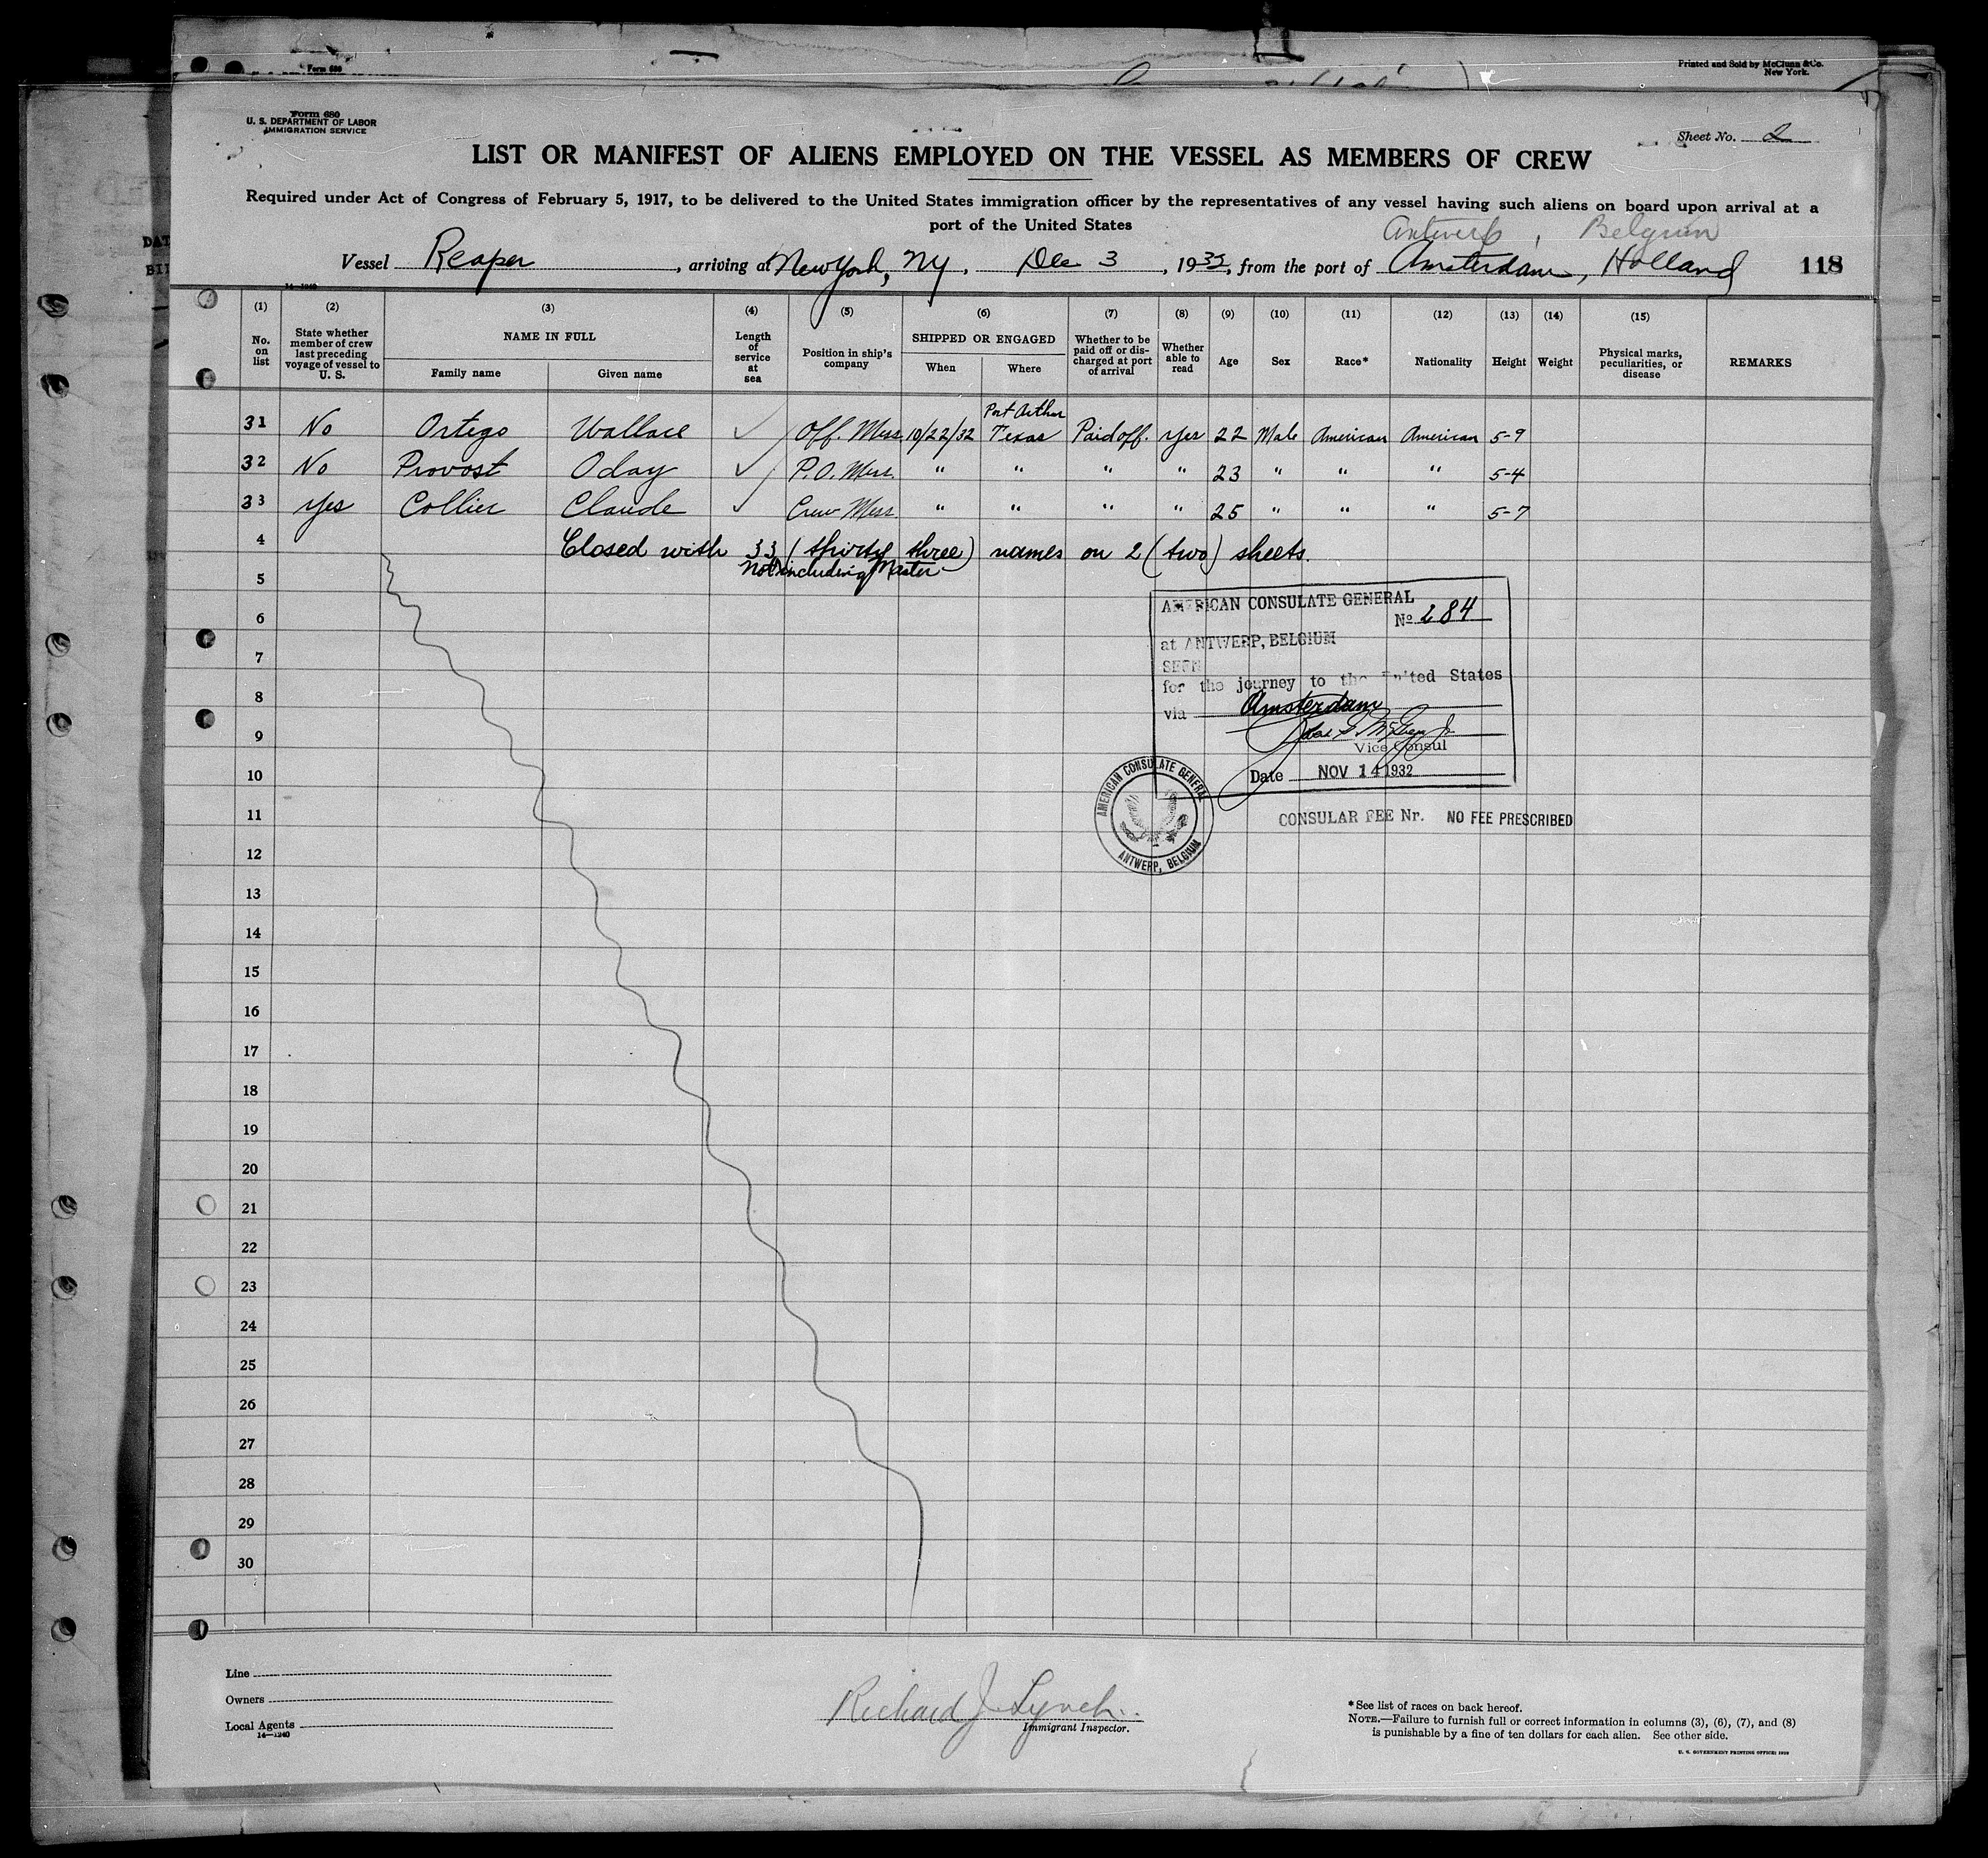 Form 680
Printed and Sold by McClunn & Co.
New York.
Form 680
U. S. DEPARTMENT OF LABOR
IMMIGRATION SERVICE
Sheet No. 2
LIST OR MANIFEST OF ALIENS EMPLOYED ON THE VESSEL AS MEMBERS OF CREW
Required under Act of Congress of February 5, 1917, to be delivered to the United States immigration officer by the representatives of any vessel having such aliens on board upon arrival at a
port of the United States
Antwerp, Belgium
Vessel Reaper, arriving at New York, NY, Dec 3, 1932, from the port of Amsterdam, Holland 118
(1) (2) (3) (4) (5) (6) (7) (8) (9) (10) (11) (12) (13) (14) (15)
No. on list
State whether member of crew last preceding voyage of vessel to U. S.
NAME IN FULL
Family name
Given name
Length of service at sea
Position in ship's company
SHIPPED OR ENGAGED
When
Where
Whether to be paid off or discharged at port of arrival
Whether able to read
Age
Sex
Race*
Nationality
Height
Weight
Physical marks, peculiarities, or disease
REMARKS
Port Arthur
31 No Ortego Wallace ✓ Off. Mess 10/22/32 Texas Paid off. yes 22 Male American American 5-9
32 No Provost Oday ✓ P.O. Mess. " " " " 23 " " " 5-4
33 yes Collier Claude ✓ Crew Mess. " " " " 25 " " " 5-7
4 Closed with 33 (thirty three) names on 2 (two) sheets.
Not including Master
5
6
7
8
9
10
11
12
13
14
15
16
17
18
19
20
21
22
23
24
25
26
27
28
29
30
AMERICAN CONSULATE GENERAL
No 284
at ANTWERP, BELGIUM
SEEN
for the journey to the United States
via Amsterdam
Vice Consul
Date NOV 14 1932
AMERICAN CONSULATE GENERAL
ANTWERP, BELGIUM
CONSULAR FEE Nr. NO FEE PRESCRIBED
Line
Owners
Local Agents
14—1240
Richard J. Lynch
Immigrant Inspector.
* See list of races on back hereof.
NOTE.—Failure to furnish full or correct information in columns (3), (6), (7), and (8)
is punishable by a fine of ten dollars for each alien. See other side.